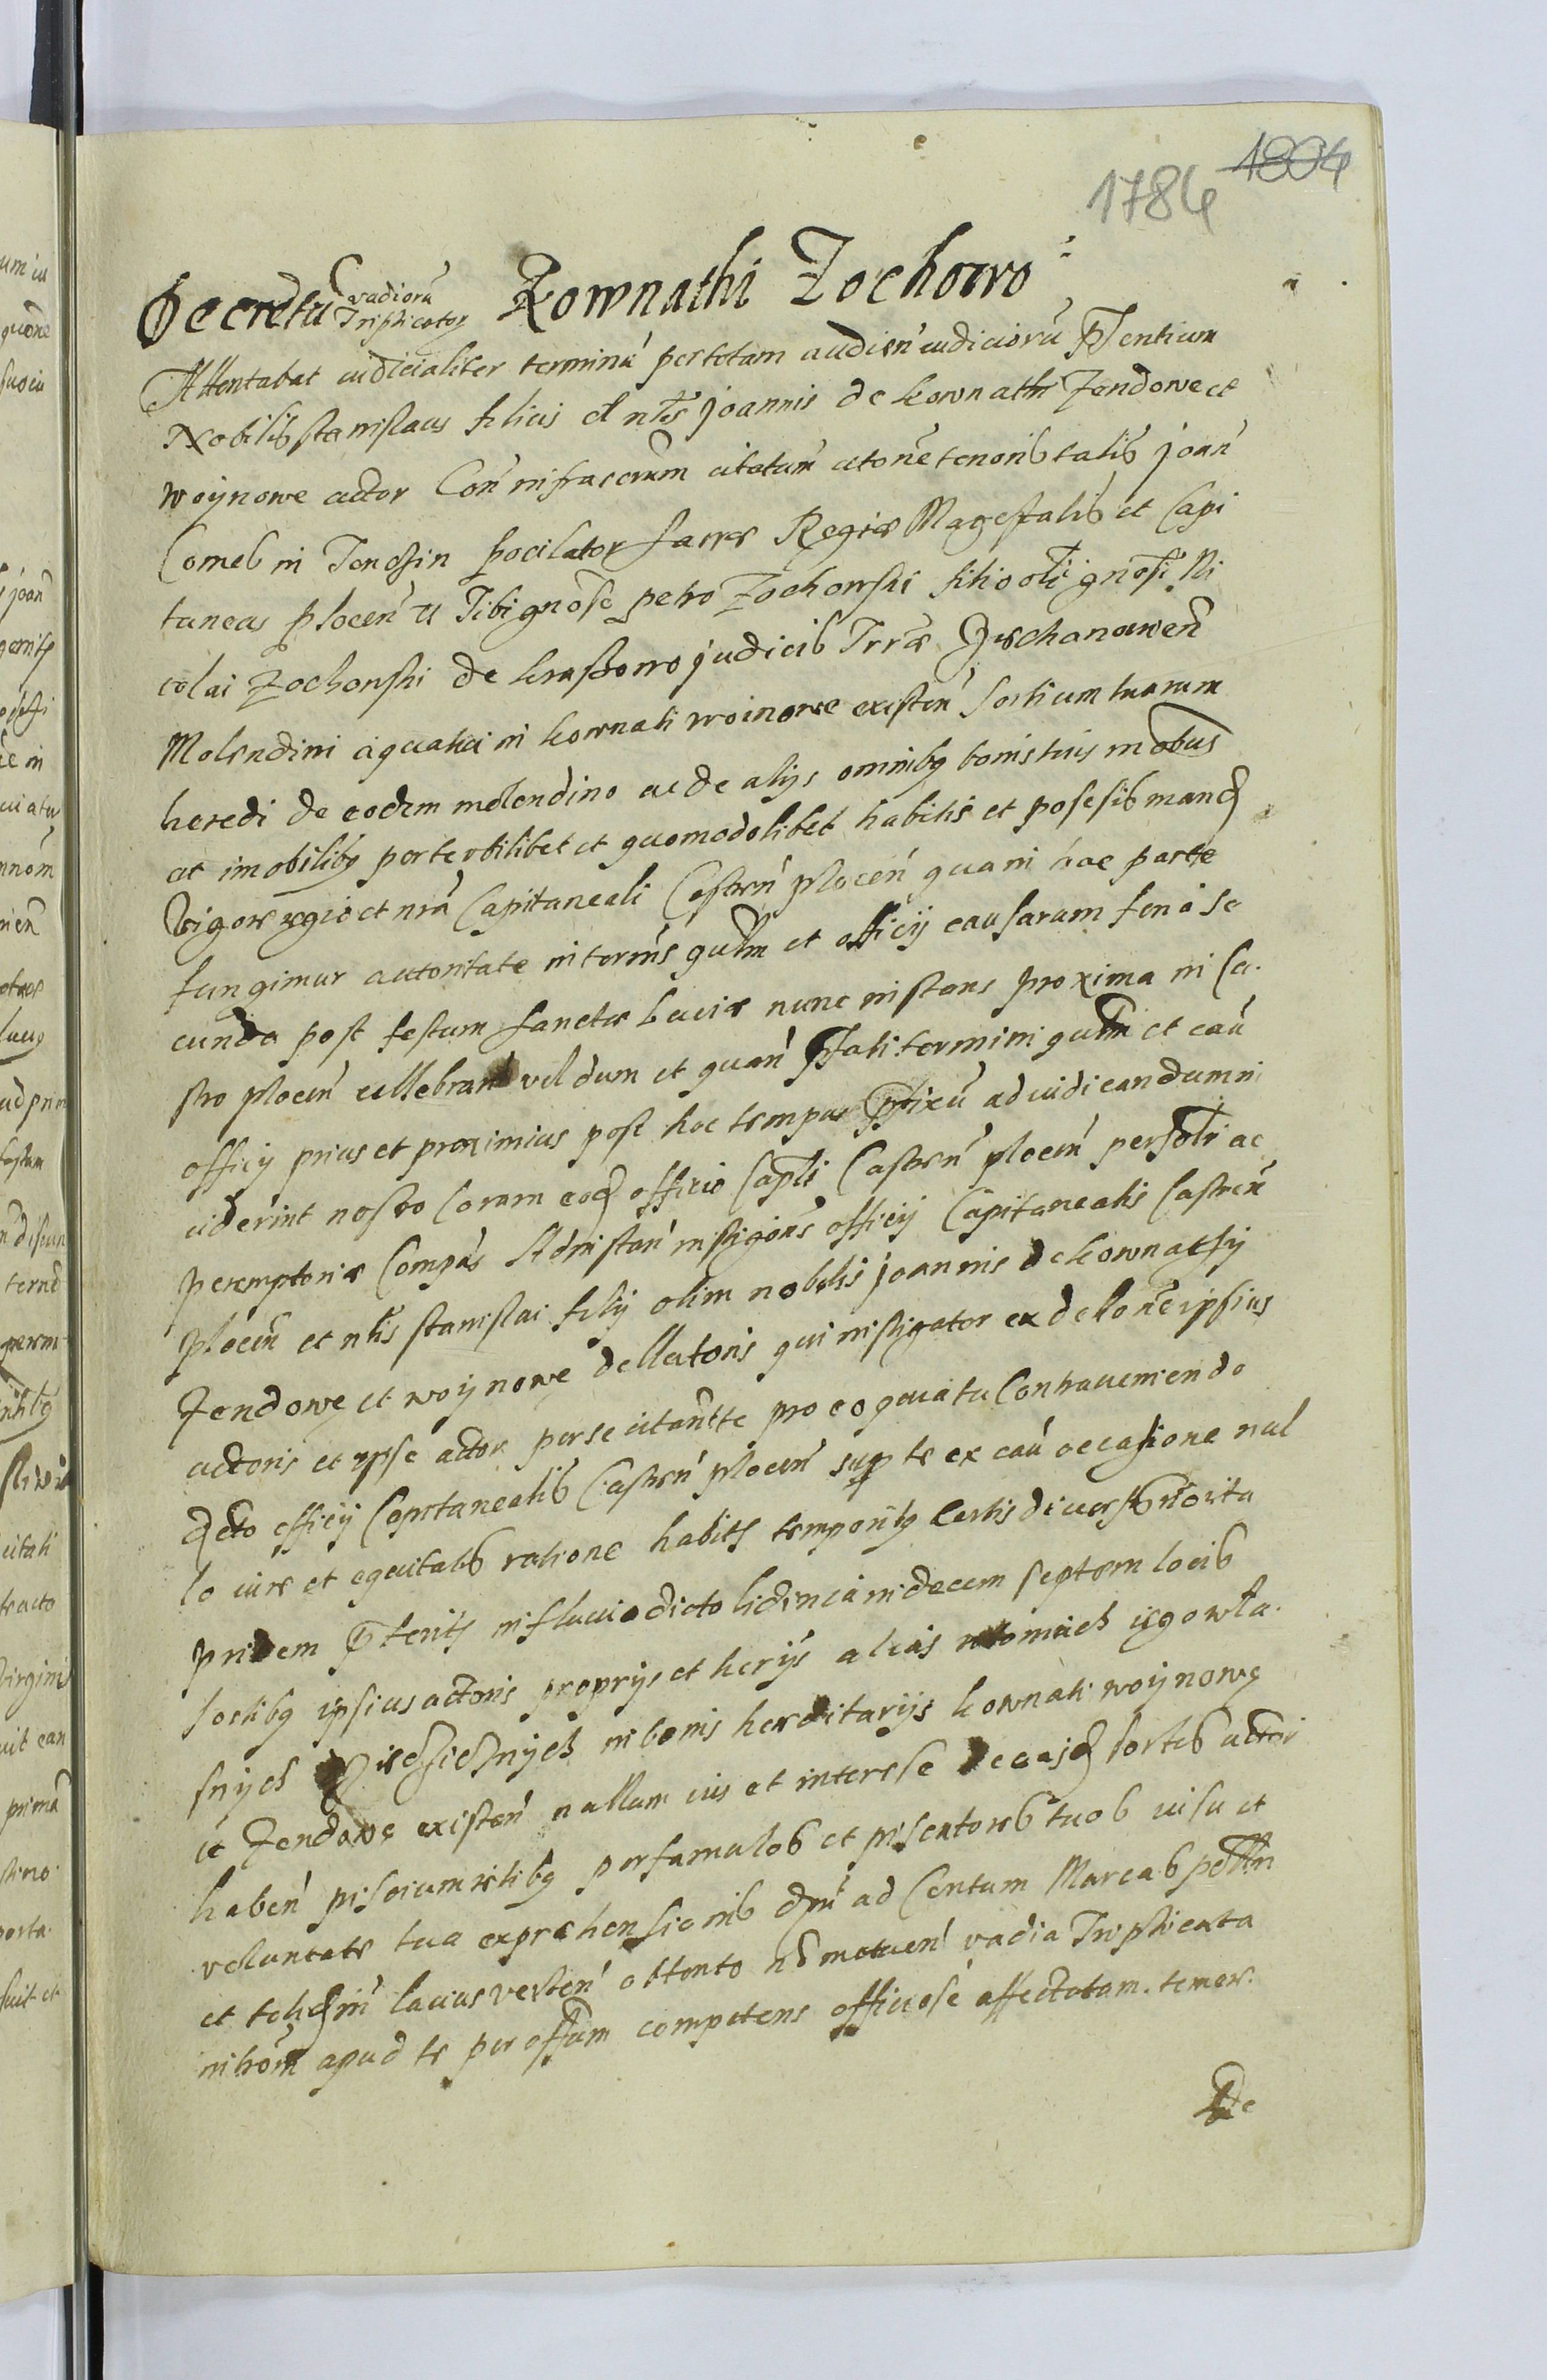 1784 1804
Decretu vadioru Triplicator Kownathi Zochowo
Attentabat iudicialiter terminu per totam audien iudicioru pntium
Nobilis stanislaus filius olim nlis Joannis de kownathi Zendowe et
woynowe actor Con infrascrum citatum citatone tenoris talis Joan
Comes in Tenczin pocilator sacrae Regiae Magestatis et Capi
taneus plocen tt Tibi gnose petro Zochowski filio oli gnosi Ni
colai Zochowski de krassowo judicis Trrae Czechanowen
Molendini aquatici in kownati woinowe existen sortium tuarum
heredi de eodem molendino ac de alijs omnibq bonis tuis mobus
at imobilibq per te vbilibet et quomodolibet habitis et posesis mandq
Vigore regio et nra Capitaneali Castren plocen qua in hac parte
fungimur autoritate in termis qulm et officij causarum feria se
cunda post festum sanctae Luciae nunc instans proxima in Ca
stro plocen cellebran vel dum et quan pfati termini qulm et cau
officij prius et proximius post hoc tempus pfixu ad iudicandum in
ciderint nostro Coram eodq officio Capli Castren plocen personli ac
peremptorie Compas Ad instan instigoris officij Capitanealis Castren
plocen et nlis stanislai filij olim nobilis joannis de kownathy
Zendowe et woynowe dellatoris qui instigator ex delone ipsius
actoris et ipse actor per se citant te pro eo quia tu Contraueniendo
dcto officij Capitanealis Castren plocen sup te ex cau occasione nul
lo iure et equitatis ratione habits temporibq certis diuersis non ita
pridem pteritis in fluuio dicto lidinia in decem septem locis
sortibq ipsius actoris proprijs et herijs alias w tomiech iego wla
snych Dziedzicznych in bonis hereditarijs kownati woynowe
et Zendowe existen nullum ius et interese de eaisdq sortis actori
haben piscium retibq per famulos et piscatores tuos iusu et
voluntate tua exprehensionib dni ad Centum Marcas pecun
et tohdin lacus vesten obtento no metuen vadia Triplicata
in trom apud te per offum competens officiose affectatam. temere
De